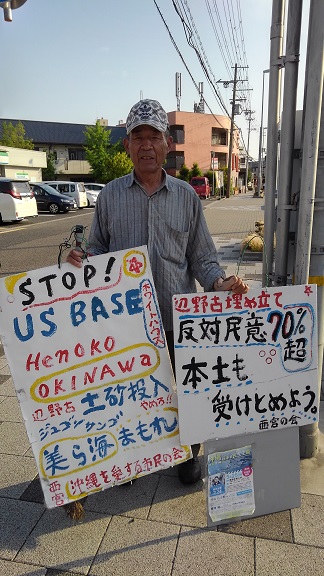 STOP!
US BASE
ホワイトハウスへ
Henoko
OKINAWA
辺野古 土砂投入
やめろ!!
ジュゴン サンゴ
美ら海 まもれ
西宮 沖縄を愛する市民の会
辺野古埋め立て
反対民意70%
超
本土も
受けとめよう。
西宮の会